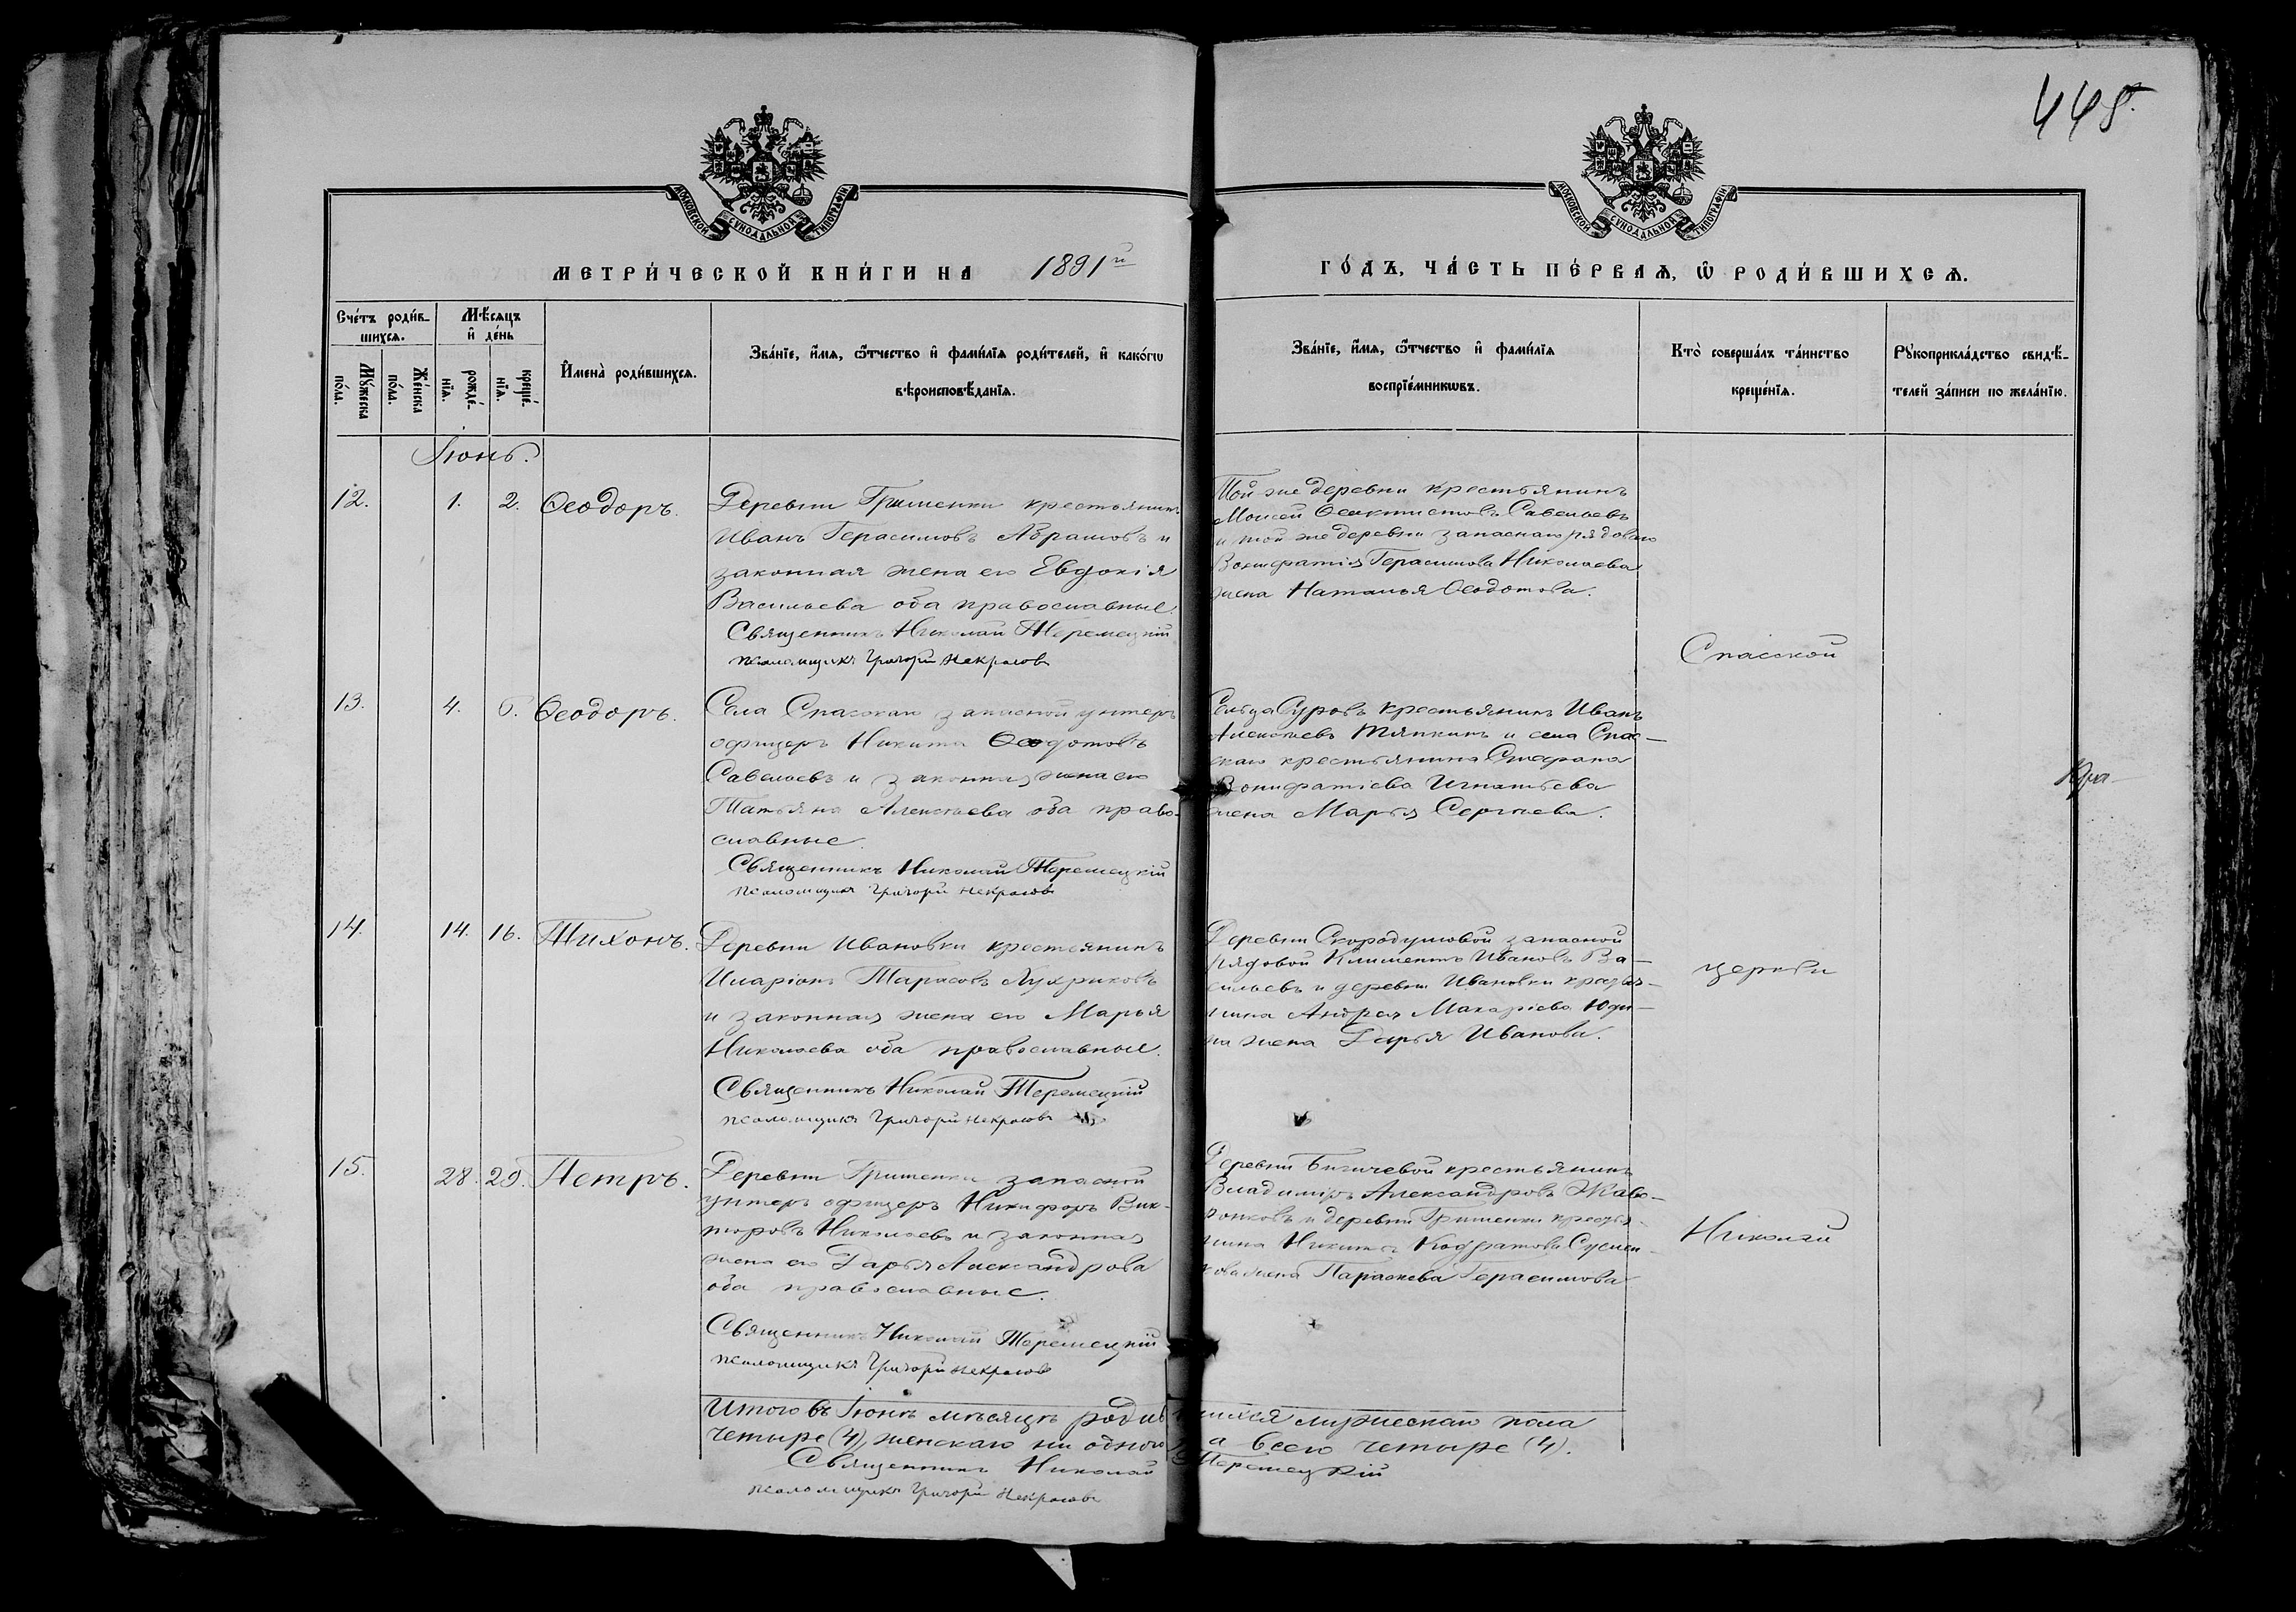 445.
МОСКОВСКОЙ СѴНОДАЛЬНОЙ ТИПОГРАФІИ
МОСКОВСКОЙ СѴНОДАЛЬНОЙ ТИПОГРАФІИ
МЕТРИ́ЧЕСКОЙ КНИ́ГИ НА 1891й
ГО́ДЪ, ЧА́СТЬ ПЕ́РВАѦ, Ѡ҆ РОДИ́ВШИХСѦ.
Сче́тъ роди́в-
шихсѧ.
Мꙋ́жеска по́ла.
Же́нска по́ла.
Мѣ́сѧцъ
и҆ де́нь
рожде́-
нїѧ.
креще́-
нїѧ.
И҆мена̀ роди́вшихсѧ.
Зва́нїе, и҆́мѧ, ѻ҆́тчество и҆ фами́лїѧ роди́телей, и҆ како́гѡ
вѣроисповѣ́данїѧ.
Зва́нїе, и҆́мѧ, ѻ҆́тчество и҆ фами́лїѧ
воспрїе́мникѡвъ.
Кто̀ соверша́лъ та́инство
креще́нїѧ.
Рꙋкоприкла́дство свидѣ́-
телей за́писи по жела́нїю.
Іюнь.
12.
1.
2.
Ѳеодоръ.
Деревни Гришенки крестьянинъ
Иванъ Герасимовъ Абрамовъ и
законная жена его Евдокія
Васильева оба православные.
Священникъ Николай Теремецкій
псаломщикъ Григорій Некрасовъ
Той же деревни крестьянинъ
Моисей Ѳеоктистовъ Савельевъ
и той же деревни запаснаго рядового
Вонифатія Герасимова Николаева
жена Наталья Ѳеодотова.
Спасской
13.
4.
6.
Ѳеодоръ.
Села Спасскаго запасной унтеръ
офицеръ Никита Ѳеодотовъ
Савельевъ и законная жена его
Татьяна Алексѣева оба право-
славные.
Священникъ Николай Теремецкій
псаломщикъ Григорій Некрасовъ
Сельца Суровъ крестьянинъ Иванъ
Алексѣевъ Тяпкинъ и села Спас-
скаго крестьянина Стефана
Вонифатіева Игнатьева
жена Марья Сергѣева.
14.
14.
16.
Тихонъ.
Деревни Ивановки крестьянинъ
Иларіонъ Тарасовъ Лухриковъ
и законная жена его Марья
Николаева оба православные.
Священникъ Николай Теремецкій
псаломщикъ Григорій Некрасовъ
Деревни Скородумовой запасной
рядовой Климентъ Ивановъ Ва-
сильевъ и деревни Ивановки кресть-
янина Андрея Макаріева Юди-
на жена Дарья Иванова.
церкви
15.
28.
29.
Петръ.
Деревни Гришенки запасной
унтеръ офицеръ Никифоръ Вик-
торовъ Николаевъ и законная
жена его Дарья Александрова
оба православные.
Священникъ Николай Теремецкій
псаломщикъ Григорій Некрасовъ
Деревни Бигичевой крестьянинъ
Владиміръ Александровъ Жаво-
ронковъ и деревни Гришенки кресть-
янина Никиты Кодратова
жена Параскева Герасимова
Николай
Итого въ Іюнѣ мѣсяцѣ родившихся мужескаго пола
четыре (4), женскаго ни одного а всего четыре (4).
Священникъ Николай Теремецкій
псаломщикъ Григорій Некрасовъ